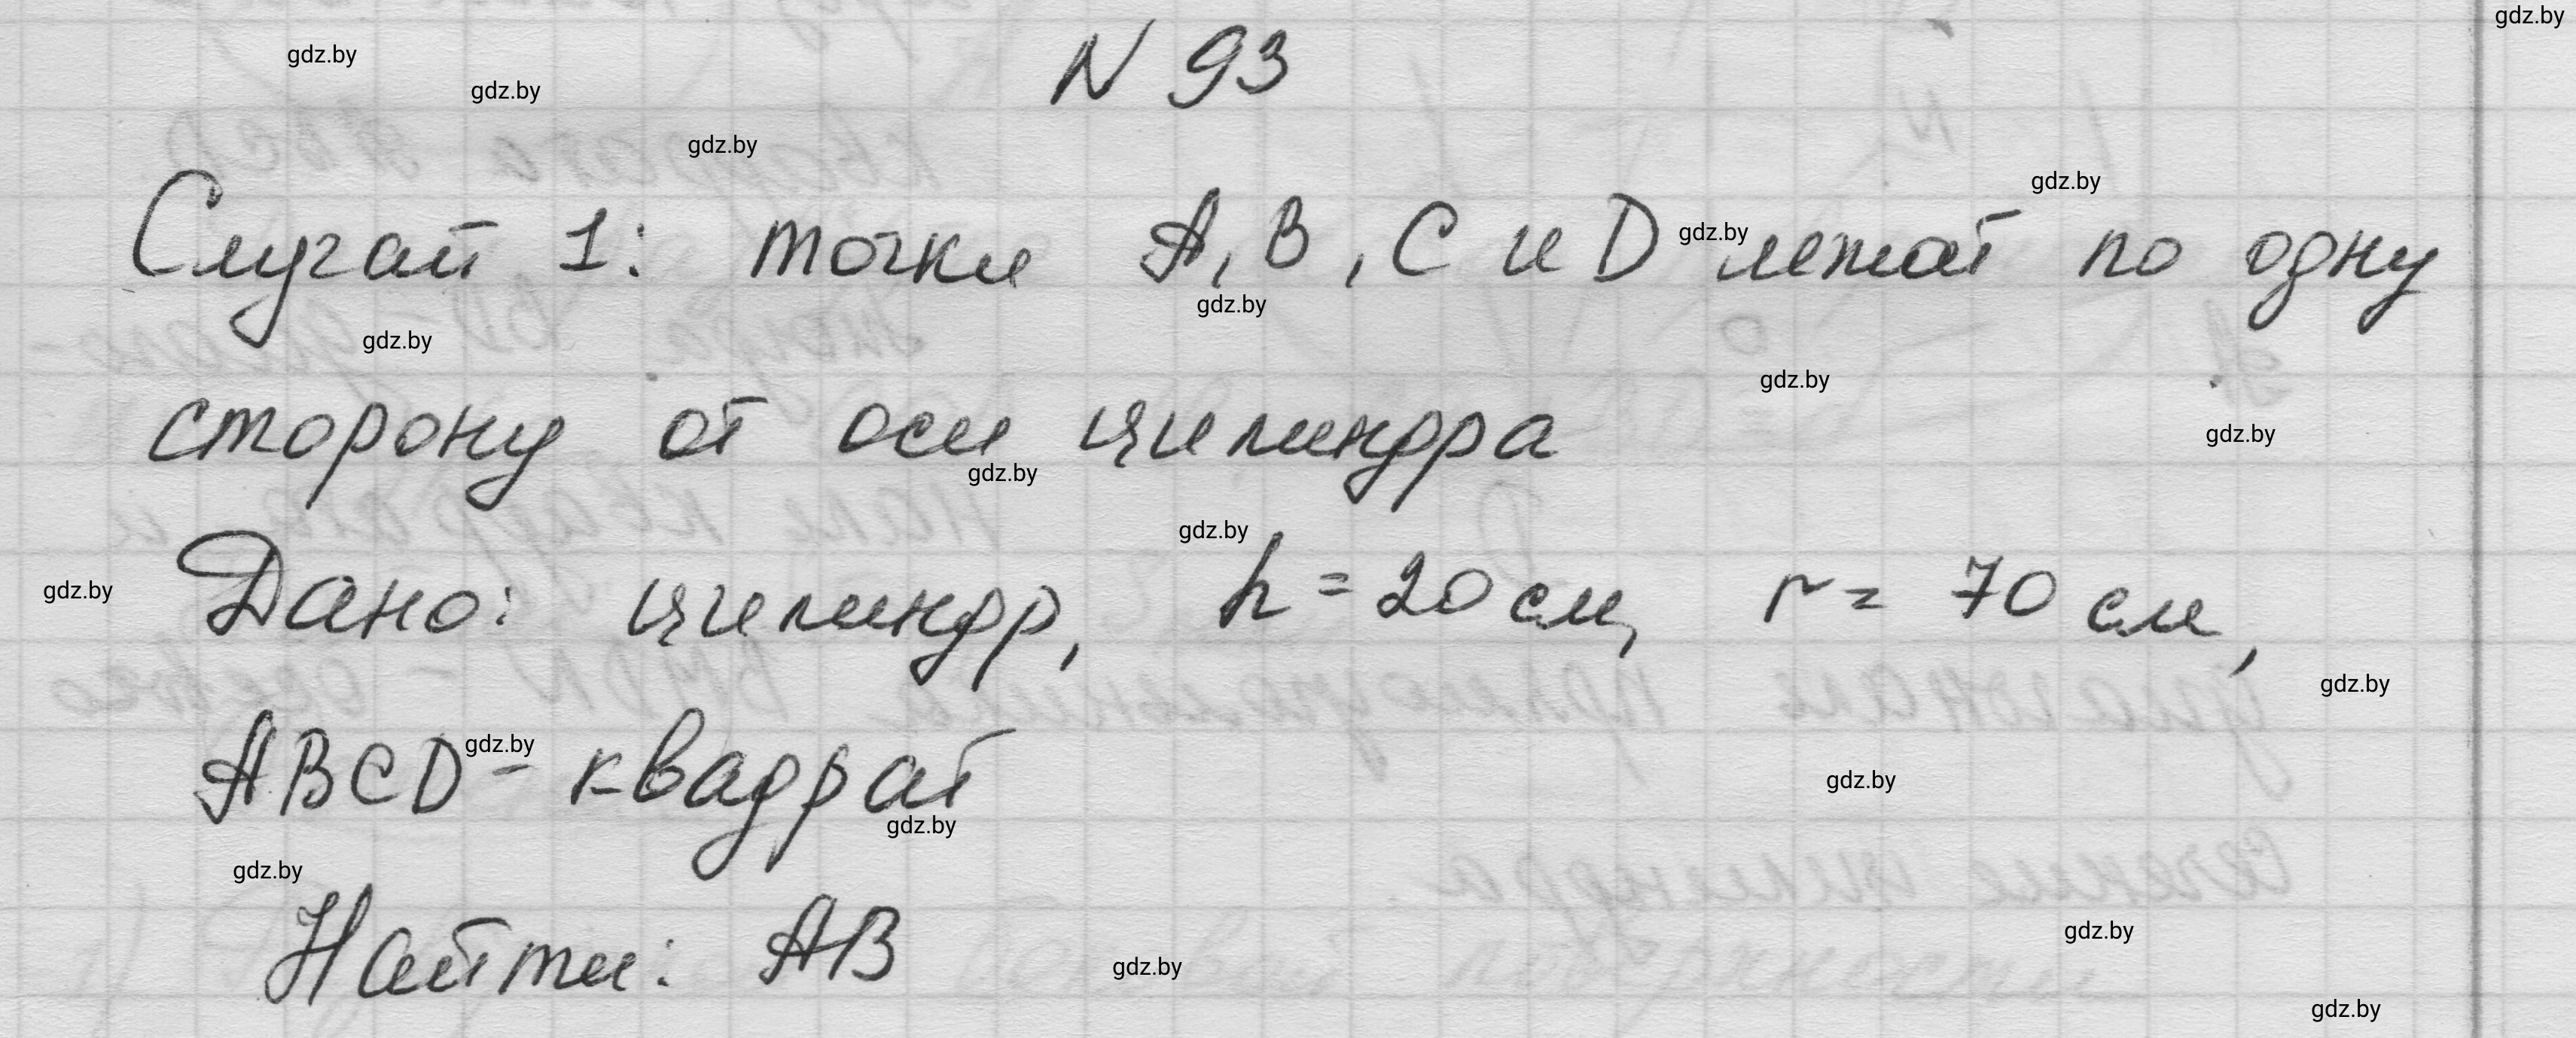 N 93
Случай 1: точки A, B, C и D лежат по одну
сторону от оси цилиндра
Дано: цилиндр, h = 20 см, r = 70 см,
ABCD - квадрат
Найти: AB
gdz.by
gdz.by
gdz.by
gdz.by
gdz.by
gdz.by
gdz.by
gdz.by
gdz.by
gdz.by
gdz.by
gdz.by
gdz.by
gdz.by
gdz.by
gdz.by
gdz.by
gdz.by
gdz.by
gdz.by
gdz.by